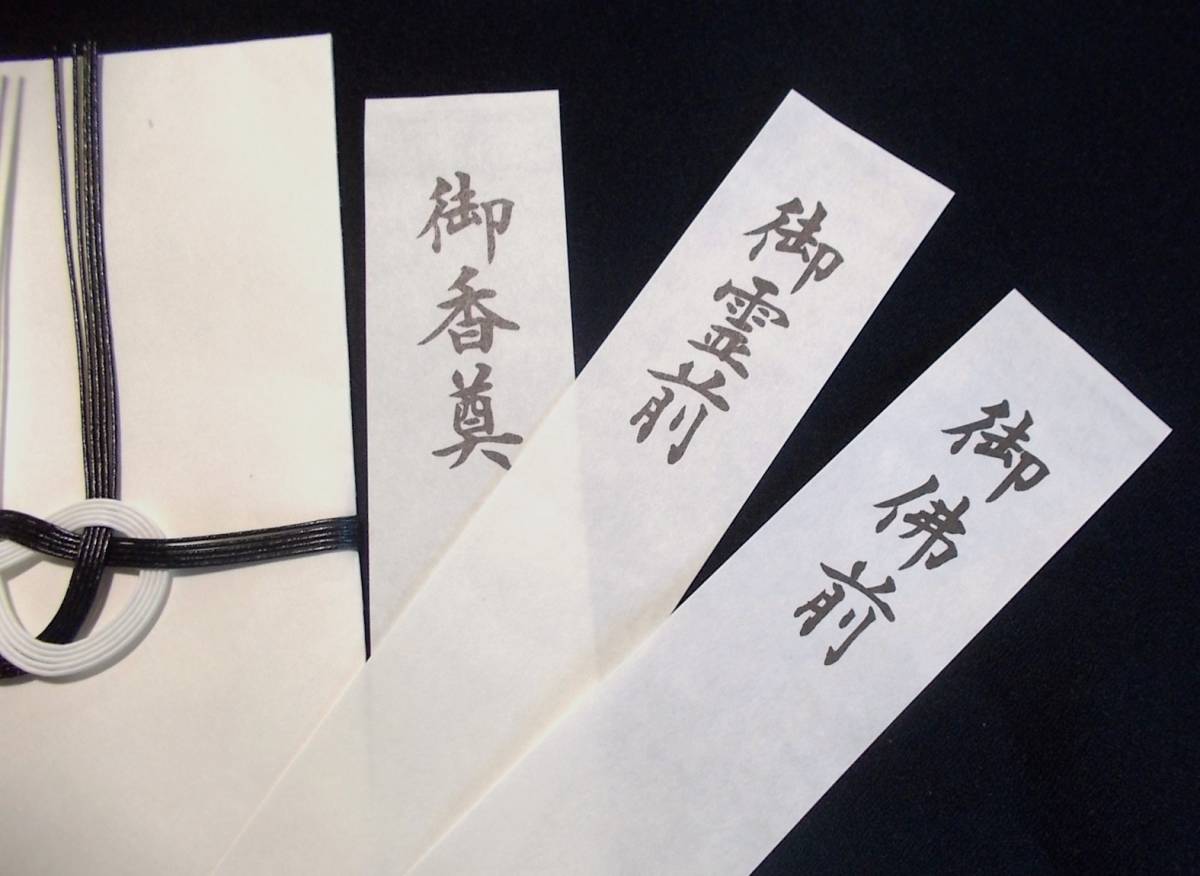 御香奠
御霊前
御佛前